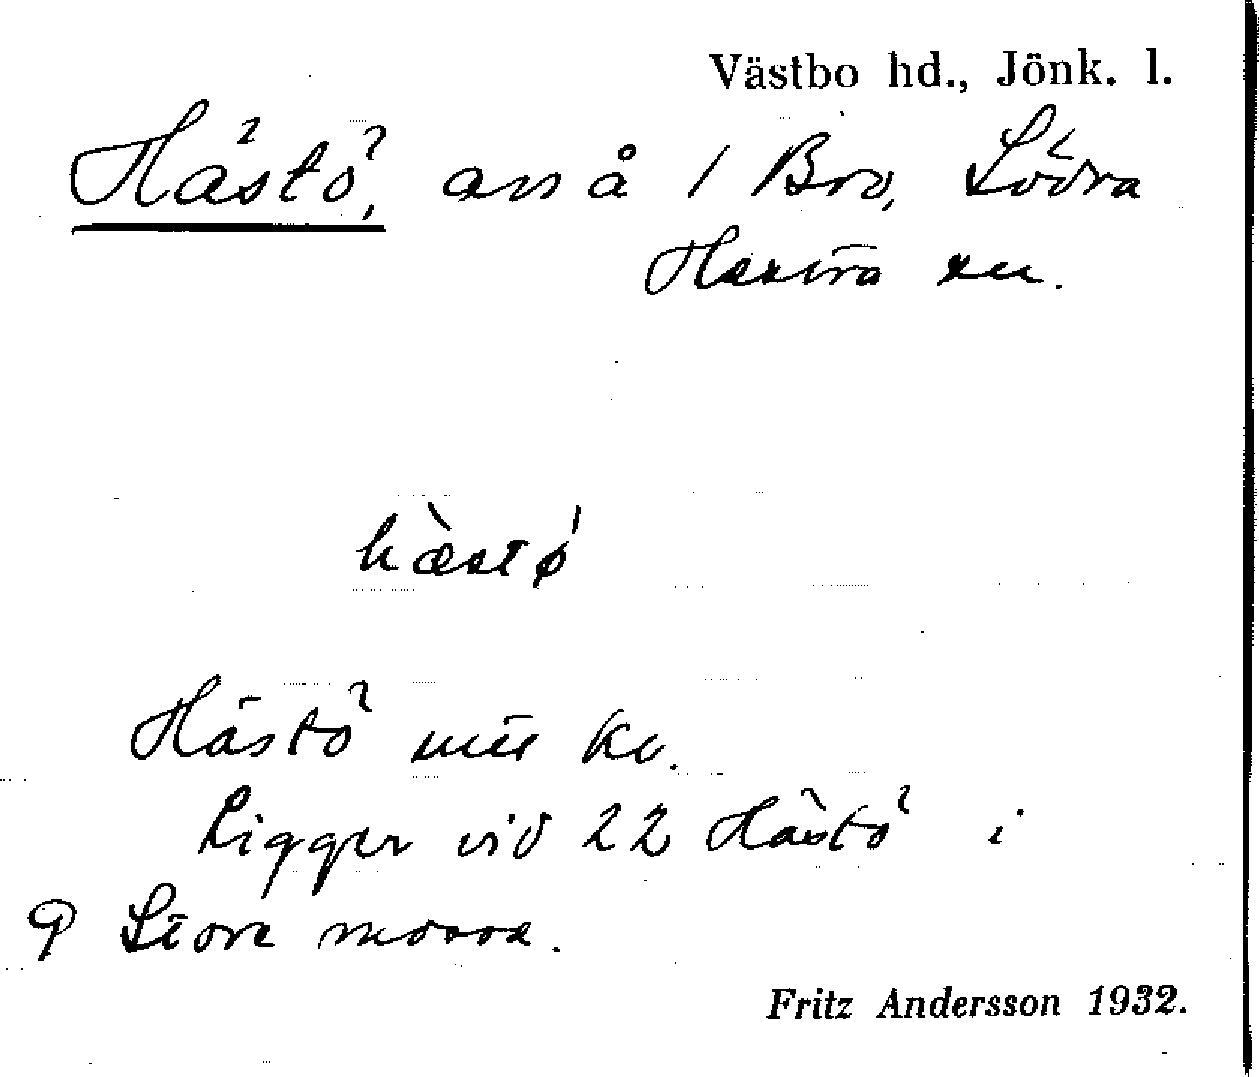 Västbo hd., Jönk. l.
Hästö, ass å 1 Bro, Södra
Hestra sn.
hæ̀stø̍
Hästö mtt kv.
Ligger vid 22 Hästö i
φ Stora mossa.
Fritz Andersson 1932.